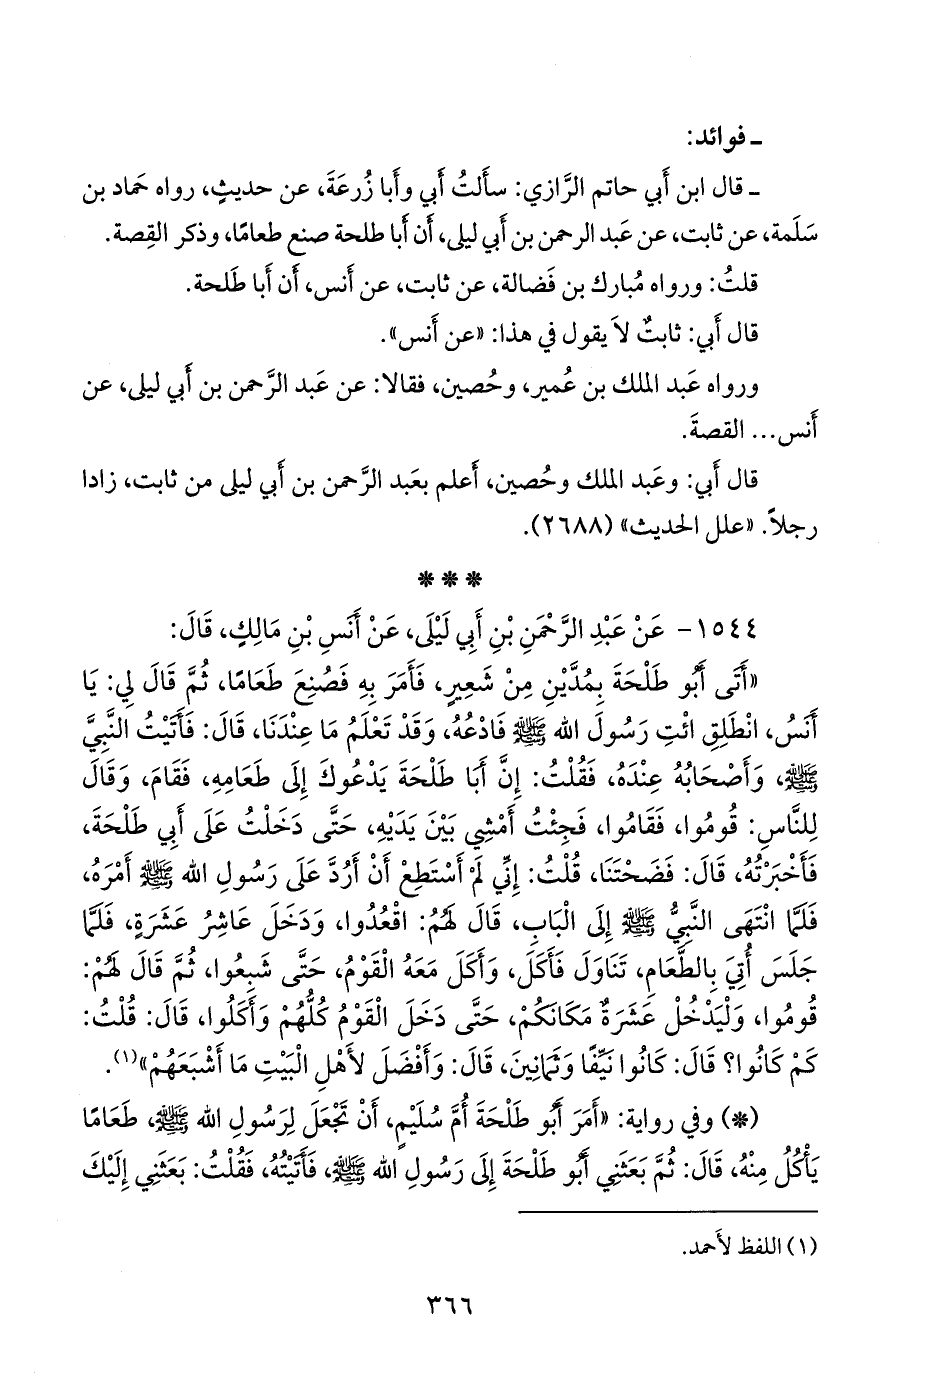 ـ فوائد:
ـ قال ابن أَبي حاتم الرَّازي: سأَلتُ أَبي وأَبا زُرعَةَ، عن حديثٍ، رواه حَماد بن
سَلَمة، عن ثابت، عن عَبد الرحمن بن أَبي ليلى، أَن أَبا طلحة صنع طعامًا، وذكر القِصة.
قلتُ: ورواه مُبارك بن فَضالة، عن ثابت، عن أَنس، أَن أَبا طَلحة.
قال أَبي: ثابتٌ لاَ يقول في هذا: «عن أَنس».
ورواه عَبد الملك بن عُمير، وحُصين، فقالا: عن عَبد الرَّحمن بن أَبي ليلى، عن
أَنس... القصةَ.
قال أَبي: وعَبد الملك وحُصين، أَعلم بعَبد الرَّحمن بن أَبي ليلى من ثابت، زادا
رجلاً. «علل الحديث» (٢٦٨٨).
***
١٥٤٤- عَنْ عَبْدِ الرَّحْمَنِ بْنِ أَبِي لَيْلَى، عَنْ أَنَسِ بْنِ مَالِكٍ، قَالَ:
«أَتَى أَبُو طَلْحَةَ بِمُدَّيْنِ مِنْ شَعِيرٍ، فَأَمَرَ بِهِ فَصُنِعَ طَعَامًا، ثُمَّ قَالَ لِي: يَا
أَنَسُ، انْطَلِقِ ائْتِ رَسُولَ الله ﷺ فَادْعُهُ، وَقَدْ تَعْلَمُ مَا عِنْدَنَا، قَالَ: فَأَتَيْتُ النَّبِيَّ
ﷺ، وَأَصْحَابُهُ عِنْدَهُ، فَقُلْتُ: إِنَّ أَبَا طَلْحَةَ يَدْعُوكَ إِلَى طَعَامِهِ، فَقَامَ، وَقَالَ
لِلنَّاسِ: قُومُوا، فَقَامُوا، فَجِئْتُ أَمْشِي بَيْنَ يَدَيْهِ، حَتَّى دَخَلْتُ عَلَى أَبِي طَلْحَةَ،
فَأَخْبَرْتُهُ، قَالَ: فَضَحْتَنَا، قُلْتُ: إِنِّي لَمْ أَسْتَطِعْ أَنْ أَرُدَّ عَلَى رَسُولِ الله ﷺ أَمْرَهُ،
فَلَمَّا انْتَهَى النَّبِيُّ ﷺ إِلَى الْبَابِ، قَالَ لَهُمُ: اقْعُدُوا، وَدَخَلَ عَاشِرُ عَشَرَةٍ، فَلَمَّا
جَلَسَ أُتِيَ بِالطَّعَامِ، تَنَاوَلَ فَأَكَلَ، وَأَكَلَ مَعَهُ الْقَوْمُ، حَتَّى شَبِعُوا، ثُمَّ قَالَ لَهُمْ:
قُومُوا، وَلْيَدْخُلْ عَشَرَةٌ مَكَانَكُمْ، حَتَّى دَخَلَ الْقَوْمُ كُلُّهُمْ وَأَكَلُوا، قَالَ: قُلْتُ:
كَمْ كَانُوا؟ قَالَ: كَانُوا نَيِّفًا وَثَمَانِينَ، قَالَ: وَأَفْضَلَ لأَهْلِ الْبَيْتِ مَا أَشْبَعَهُمْ»(١).
(*) وفي رواية: «أَمَرَ أَبُو طَلْحَةَ أُمَّ سُلَيْمٍ، أَنْ تَجْعَلَ لِرَسُولِ الله ﷺ، طَعَامًا
يَأْكُلُ مِنْهُ، قَالَ: ثُمَّ بَعَثَنِي أَبُو طَلْحَةَ إِلَى رَسُولِ الله ﷺ، فَأَتَيْتُهُ، فَقُلْتُ: بَعَثَنِي إِلَيْكَ
(١) اللفظ لأَحمد.
٣٦٦